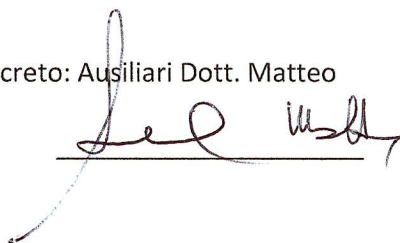 creto: Ausiliari Dott. Matteo